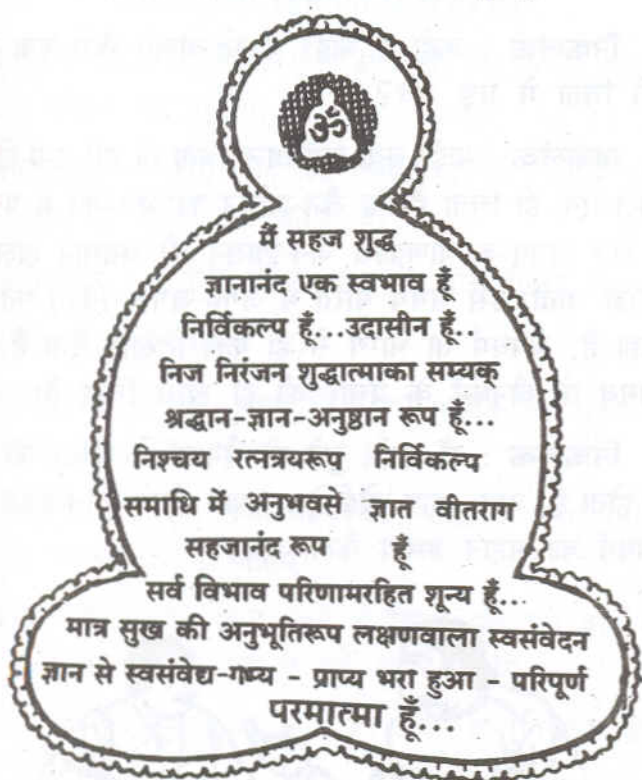 ॐ
मैं सहज शुद्ध
ज्ञानानंद एक स्वभाव हूँ
निर्विकल्प हूँ...उदासीन हूँ..
निज निरंजन शुद्धात्माका सम्यक्
श्रद्धान-ज्ञान-अनुष्ठान रूप हूँ...
निश्चय रत्नत्रयरूप निर्विकल्प
समाधि में अनुभवसे ज्ञात वीतराग
सहजानंद रूप हूँ
सर्व विभाव परिणामरहित शून्य हूँ...
मात्र सुख की अनुभूतिरूप लक्षणवाला स्वसंवेदन
ज्ञान से स्वसंवेद्य-गम्य - प्राप्य भरा हुआ - परिपूर्ण
परमात्मा हूँ...